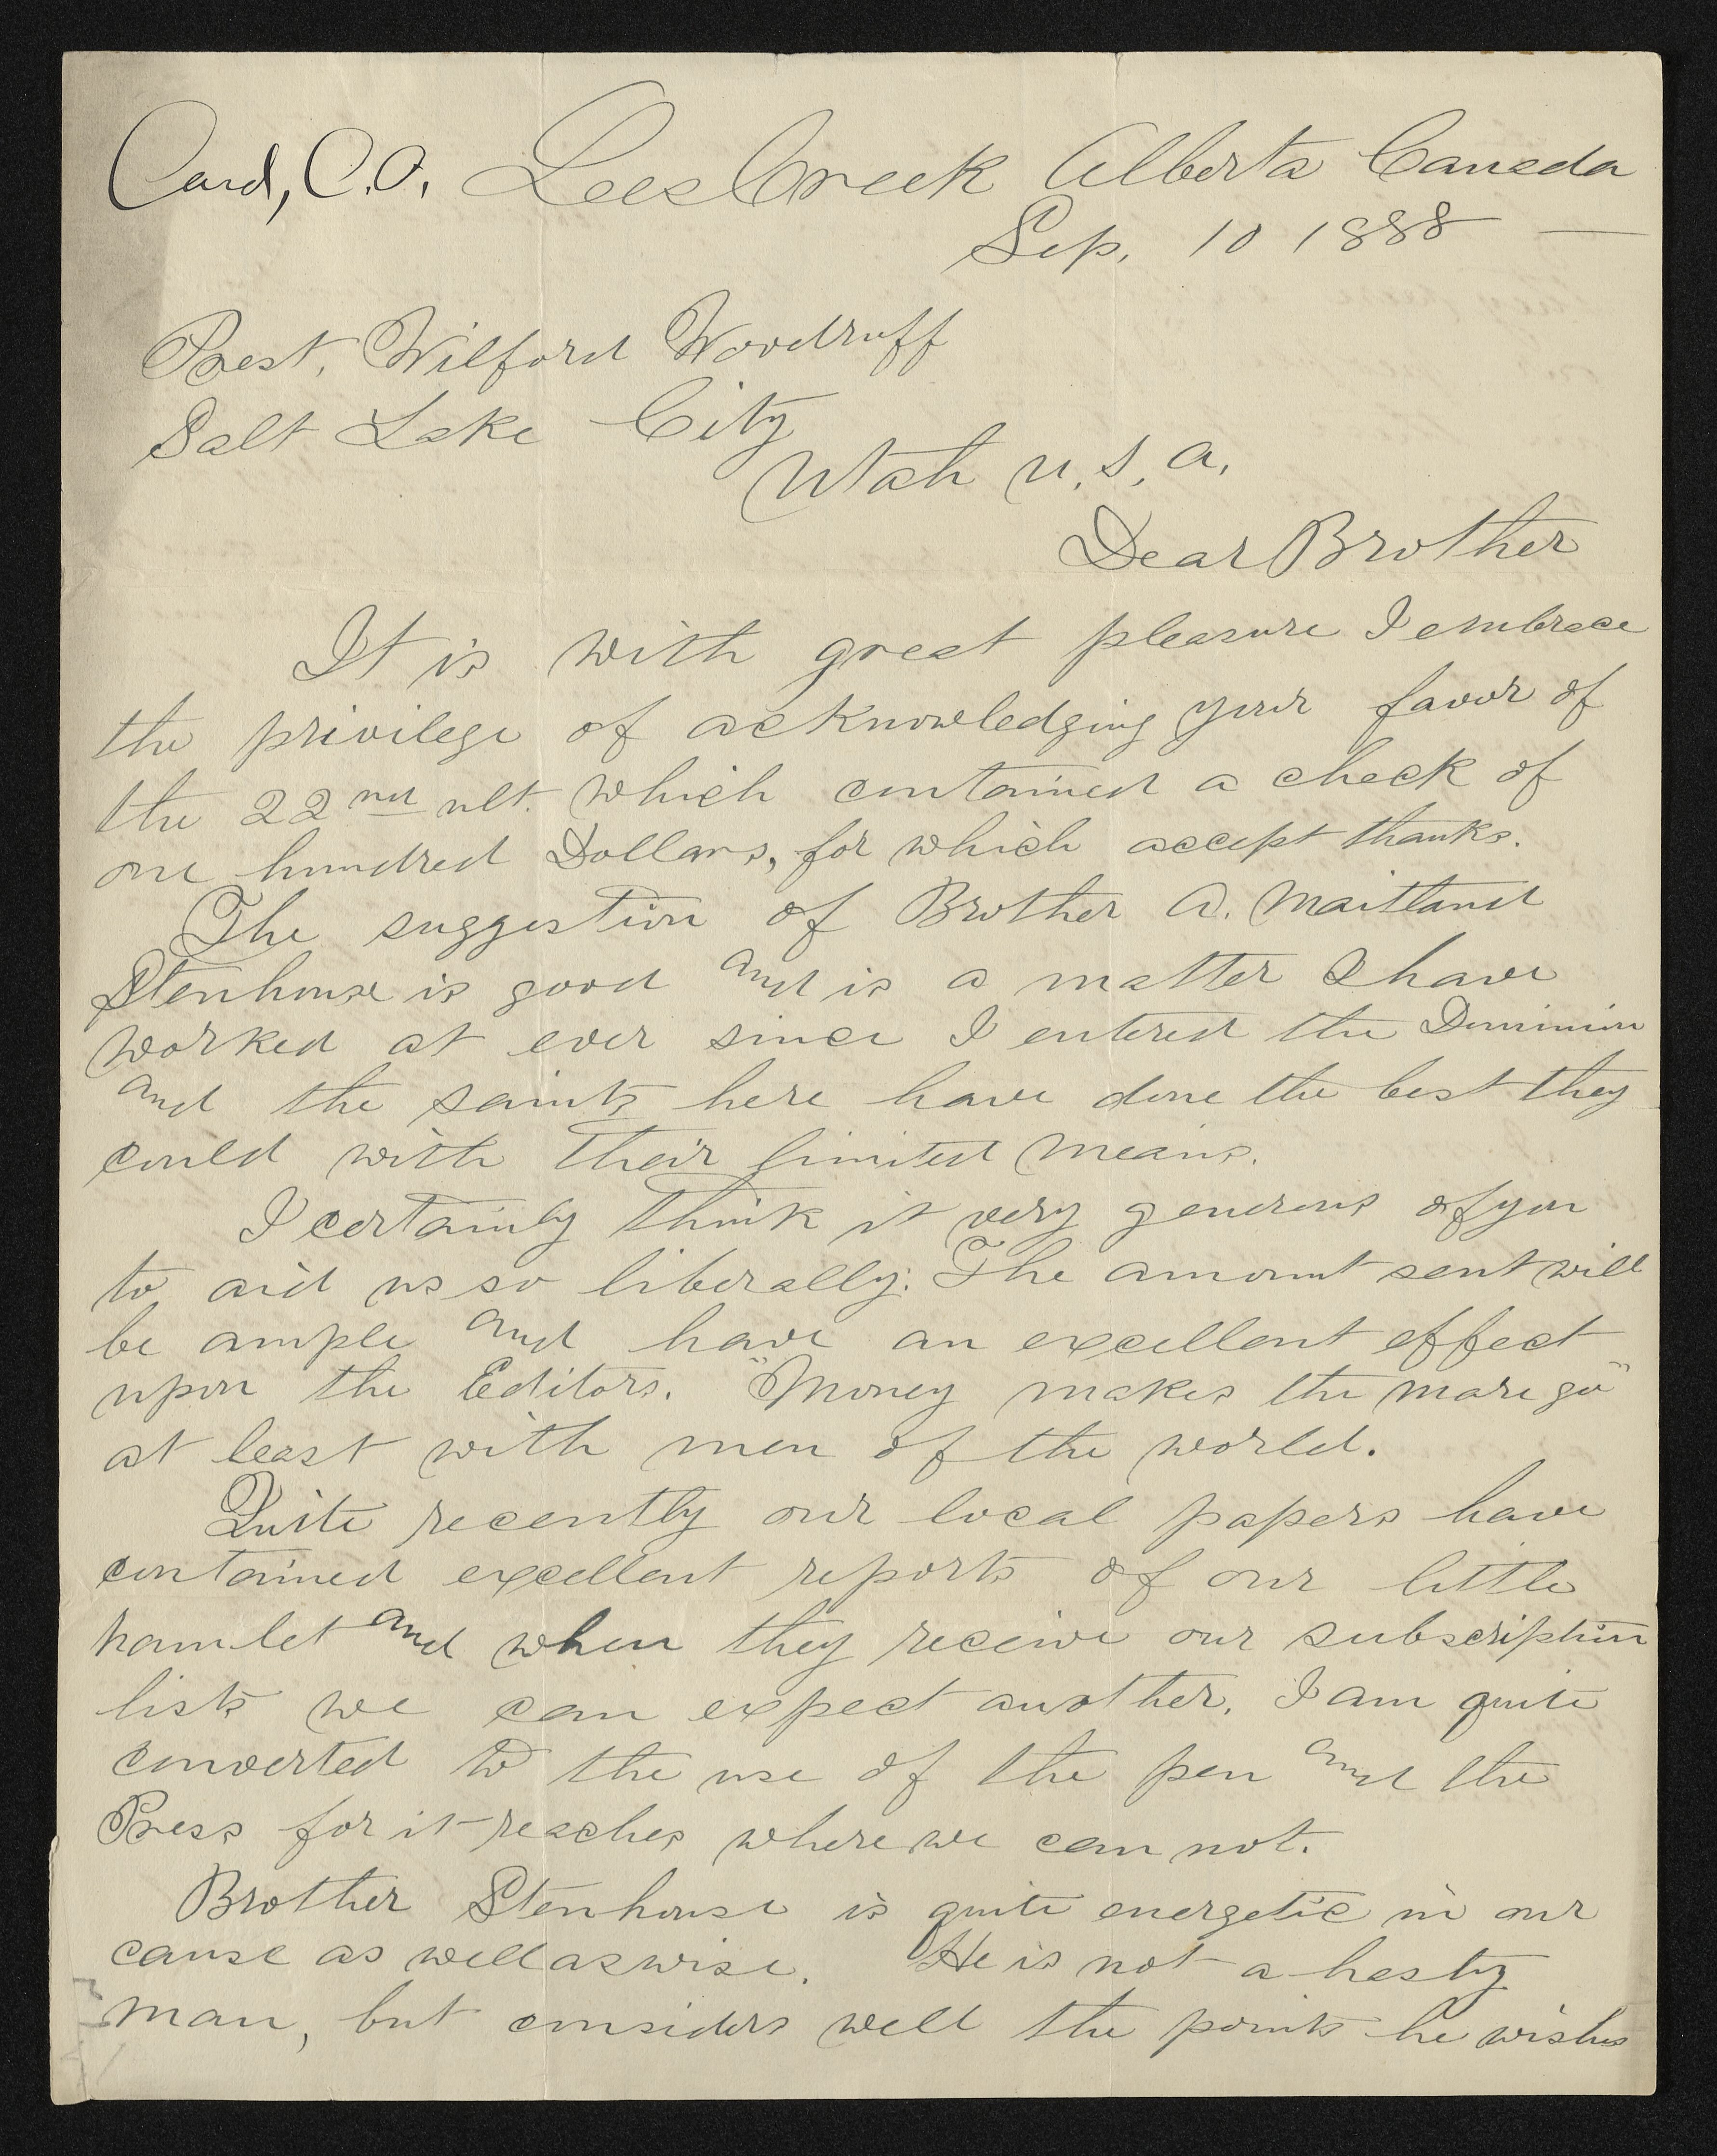 Card, C.O. Lees Creek Alberta Canada
Sep. 10 1888 —
Prest. Wilford Woodruff
Salt Lake City
Utah U.S.A.
Dear Brother
It is with great pleasure I embrace
the privilege of acknowledging your favor of
the 22nd ult. which contained a check of
one hundred Dollars, for which accept thanks.
The suggestion of Brother A. Maitland
Stenhouse is good and is a matter I have
worked at ever since I entered the Dominion
and the saints here have done the best they
could with their limited means.
I certainly think it very generous of you
to aid us so liberally. The amount sent will
be ample and have an excellent effect
upon the Editors. "Money makes the mare go"
at least with men of the world.
Quite recently our local papers have
contained excellent reports of our little
hamlet and when they receive our subscription
lists we can expect another. I am quite
converted to the use of the pen and the
Press for it reaches where we can not.
Brother Stenhouse is quite energetic in our
cause as well as wise. He is not a hasty
man, but considers well the points he wishes